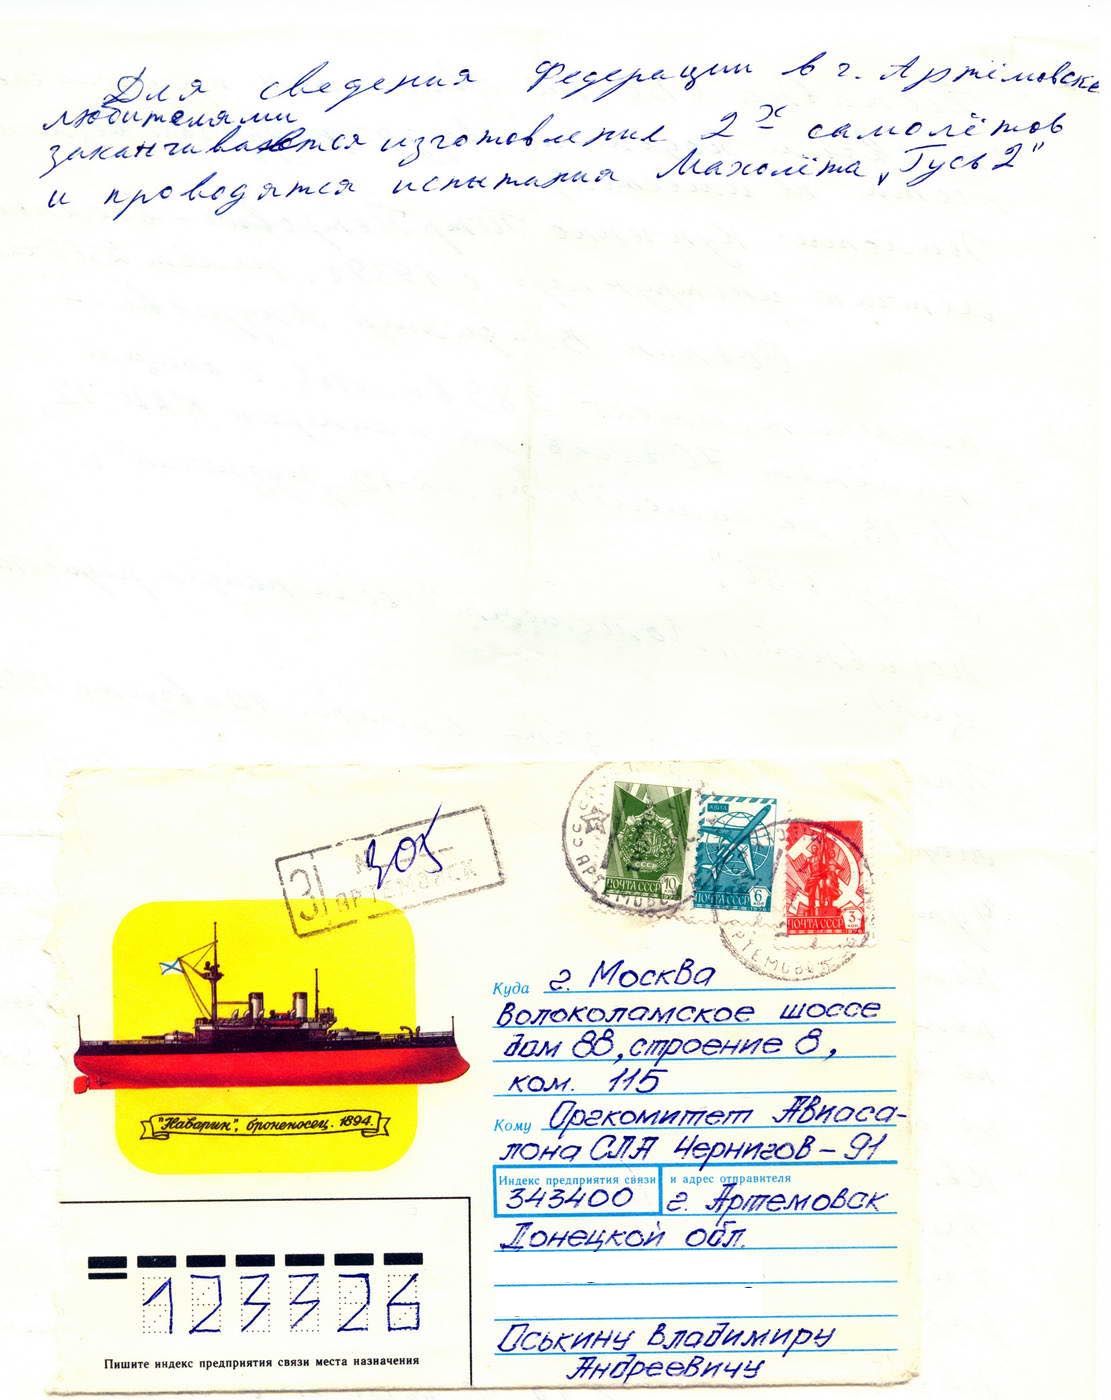 Для сведения Федерации в г. Артёмовске
любителями
заканчиваются изготовление 2х самолётов
и проводятся испытания Махолёта „Гусь 2"
305
АРТЕМОВСК
ПОЧТА СССР 10
АВИА
ПОЧТА СССР 6 коп
ПОЧТА СССР 3 коп
АРТЕМОВСК
Куда г. Москва
Волоколамское шоссе
дом 88, строение 8,
ком. 115
Кому Оргкомитет Авиаса-
лона СЛА Чернигов – 91
Индекс предприятия связи и адрес отправителя
343400 г. Артемовск
Донецкой обл.
Оськину Владимиру
Андреевичу
"Наварин", броненосец. 1894.
123326
Пишите индекс предприятия связи места назначения